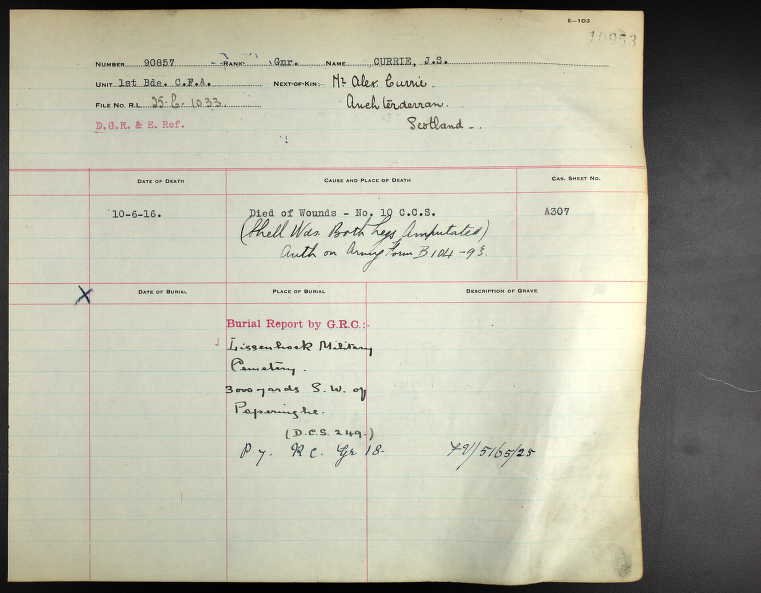 E—103
NUMBER 90857 RANK Gnr. NAME CURRIE, J.S.
UNIT 1st Bde. C.F.A. NEXT-OF-KIN:- Mr Alex. Currie.
FILE NO. R.L. 25-C-1033. Auchterderran.
D.G.R. & E. Ref. Scotland -.
DATE OF DEATH CAUSE AND PLACE OF DEATH CAS. SHEET NO.
10-6-16. Died of Wounds - No. 10 C.C.S. A307
(Shell Wds. Both Legs Amputated)
Auth on Army Form B 104-93.
DATE OF BURIAL PLACE OF BURIAL DESCRIPTION OF GRAVE
Burial Report by G.R.C.:-
Lissenhoek Military
Cemetery.
3000 yards S.W. of
Poperinghe.
(D.C.S. 249.)
R C. Gr 18-